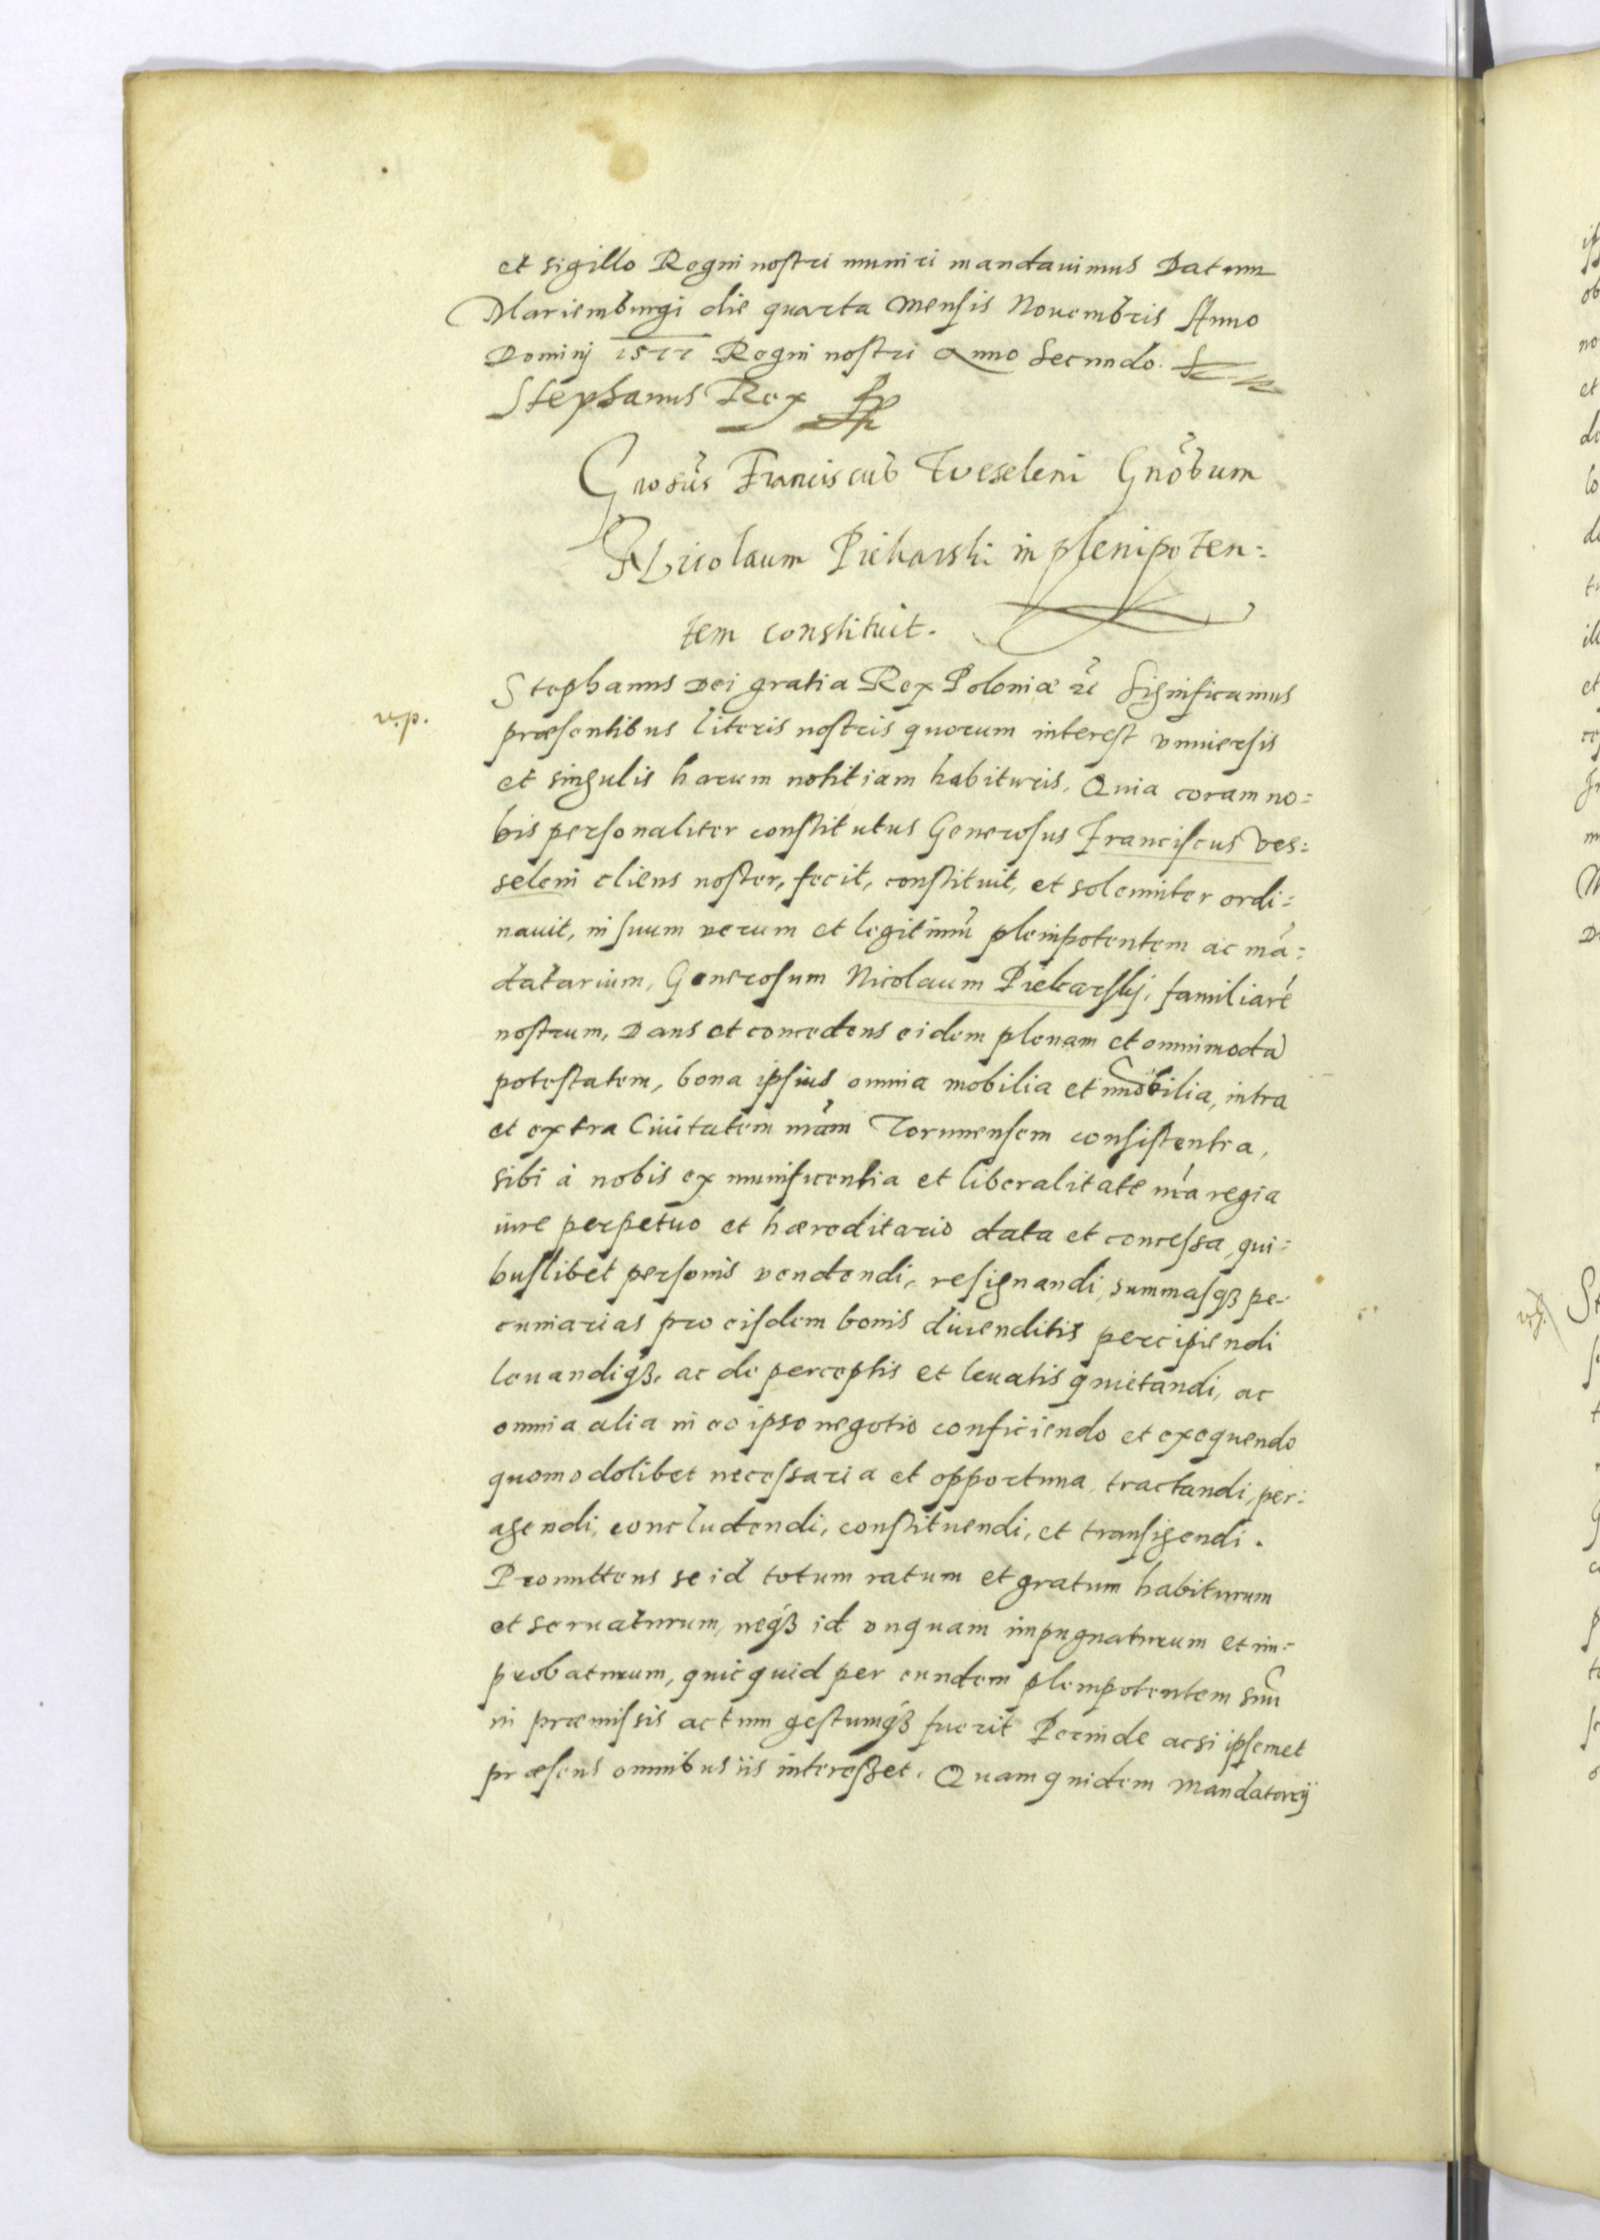 et sigillo Regni nostri muniri mandauimus Datum
Mariemburgi die quarta mensis Nouembris Anno
Dominj 1577 Regni nostri Anno Secundo.
Stephanus Rex
Gnosus Franciscus Weseleni Gnõsum
Nicolaum Piekarski in plenipoten:
tem constituit.
Stephanus Dei gratia Rex Poloniæ &c Significamus
v.p.
præsentibus literis nostris quorum interest vniuersis
et singulis harum notitiam habituris. Quia coram no:
bis personaliter constitutus Generosus Franciscus Ves:
seleni cliens noster, fecit, constituit, et solemniter ordi:
nauit, in suum verum et legitimũ plenipotentem ac mã:
datarium, Generosum Nicolaum Piekarskj, familiarẽ
nostrum, Dans et concedens eidem plenam et omnimodã
potestatem, bona ipsius omnia mobilia et immobilia, intra
et extra Ciuitatem nrãm Torunensem consistentia,
sibi à nobis ex munificentia et liberalitate nrã regia
iure perpetuo et hæreditario data et concessa, qui:
buslibet personis vendendi, resignandi, summasq₃ pe-
cuniarias pro eisdem bonis diuenditis percipiendi
leuandiq₃, ac de perceptis et leuatis quietandi, ac
omnia alia in eo ipso negotio conficiendo et exequendo
quomodolibet necessaria et opportuna, tractandi, per:
agendi, concludendi, constituendi, et transigendi.
Promittens se id totum ratum et gratum habiturum
et seruaturum, neq₃ id vnquam impugnaturum et im:
probaturum, quicquid per eundem plenipotentem suũ
in præmissis actum gestumq₃ fuerit Perinde acsi ipsemet
præsens omnibus iis interesset. Quam quidem mandatorij